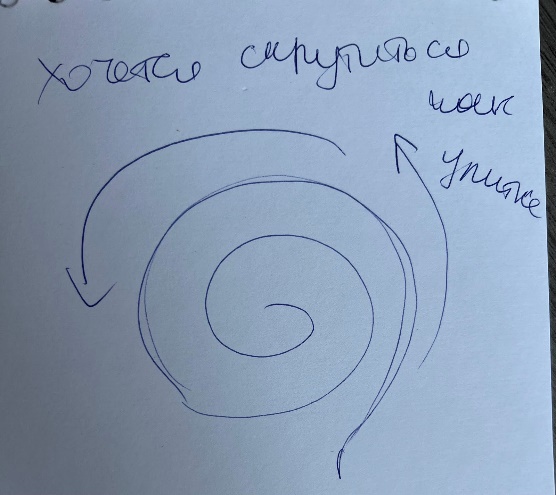 хочется скрутиться
как
улитке